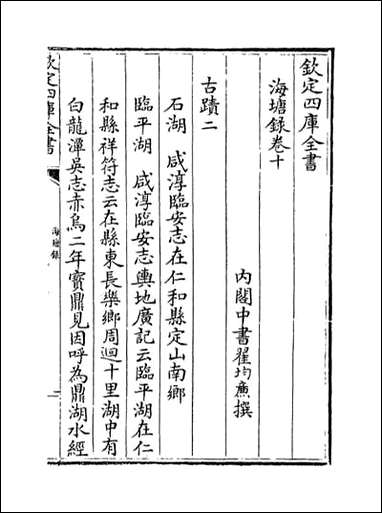 欽定四庫全書
海塘録卷十
內閣中書翟均廉撰
古蹟二
石湖　咸淳臨安志在仁和縣定山南鄉
臨平湖　咸淳臨安志輿地廣記云臨平湖在仁
和縣祥符志云在縣東長樂鄉周迴十里湖中有
白龍潭吳志赤烏二年寳鼎見因呼為鼎湖水經
欽定四庫全書
海塘録
一